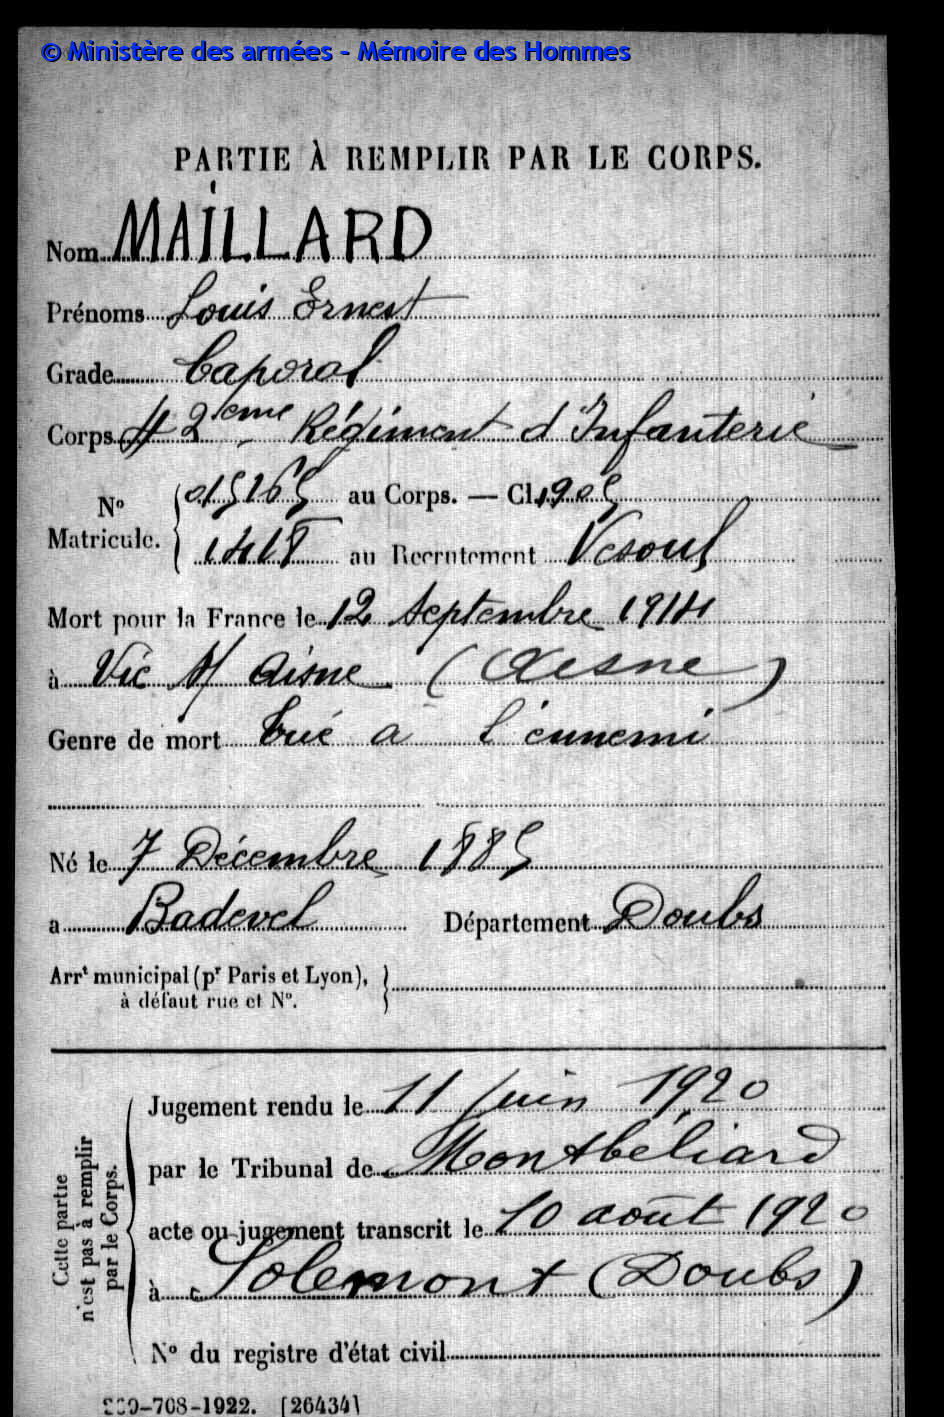 © Ministère des armées - Mémoire des Hommes
PARTIE À REMPLIR PAR LE CORPS.
Nom MAILLARD
Prénoms Louis Ernest
Grade Caporal
Corps 42ème Régiment d'Infanterie
No Matricule. 015165 au Corps. — Cl. 1905
1418 au Recrutement Vesoul
Mort pour la France le 12 Septembre 1914
à Vic s/ Aisne (Aisne)
Genre de mort tué à l'ennemi
Né le 7 Décembre 1885
a Badevel Département Doubs
Arrt municipal (pr Paris et Lyon),
à défaut rue et No.
Cette partie n'est pas à remplir par le Corps.
Jugement rendu le 11 juin 1920
par le Tribunal de Montbéliard
acte ou jugement transcrit le 10 août 1920
à Solemont (Doubs)
No du registre d'état civil
-708-1922. [26434]